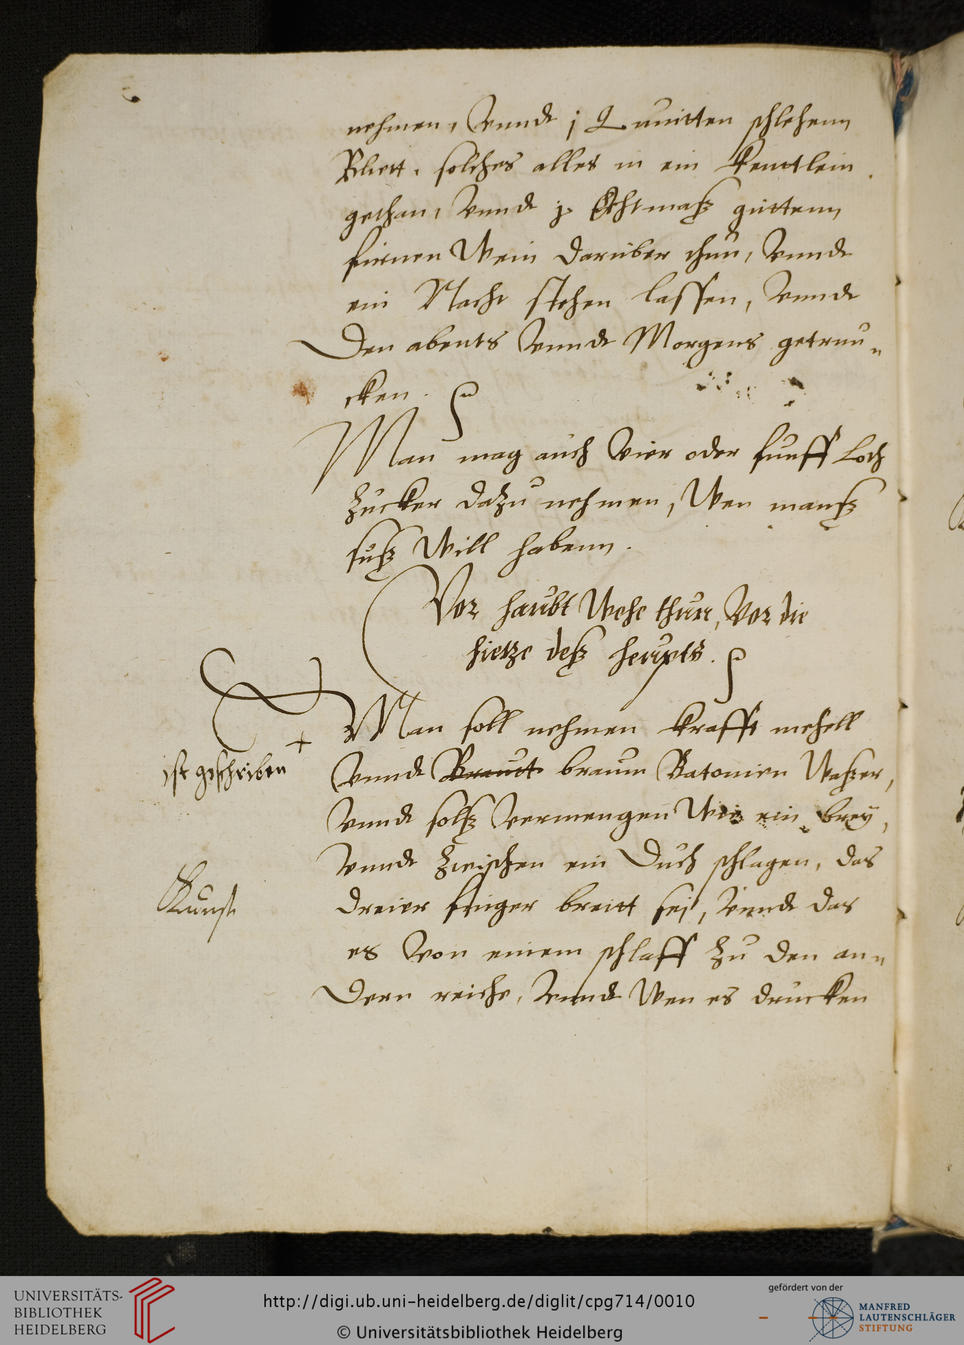 nehmen, Vnnd j Quintten schlehenn
Bluett, solches alles in ein kentlein
gethan, Vnnd j Echtmaß guttenn
firnen Wein daruber thun, Vnnd
ein Nacht stehen lassen, Vnnd
Den abents Vnnd Morgens getrun-
cken.
Man mag auch Vier oder funff Loth
Zucker dazu nehmen, Wen manß
suß Will habenn.
Vor haubt Wehe thun, Vor die
hietze deß heupts.
Man soll nehmen krafft mehell
ist geschrieben
Vnnd Braut braun Batonien Waßer,
Vnnd solß Vermengen Wie ein brey,
Vnnd Zwischen ein Duch schlagen, das
Kunst
dreier finger breitt sej, Vnnd das
es Von einem schlaff Zu den an-
Dern reiche, Vnnd Wen es drucken
UNIVERSITÄTS-
BIBLIOTHEK
HEIDELBERG
http://digi.ub.uni-heidelberg.de/diglit/cpg714/0010
© Universitätsbibliothek Heidelberg
gefördert von der
MANFRED
LAUTENSCHLÄGER
STIFTUNG